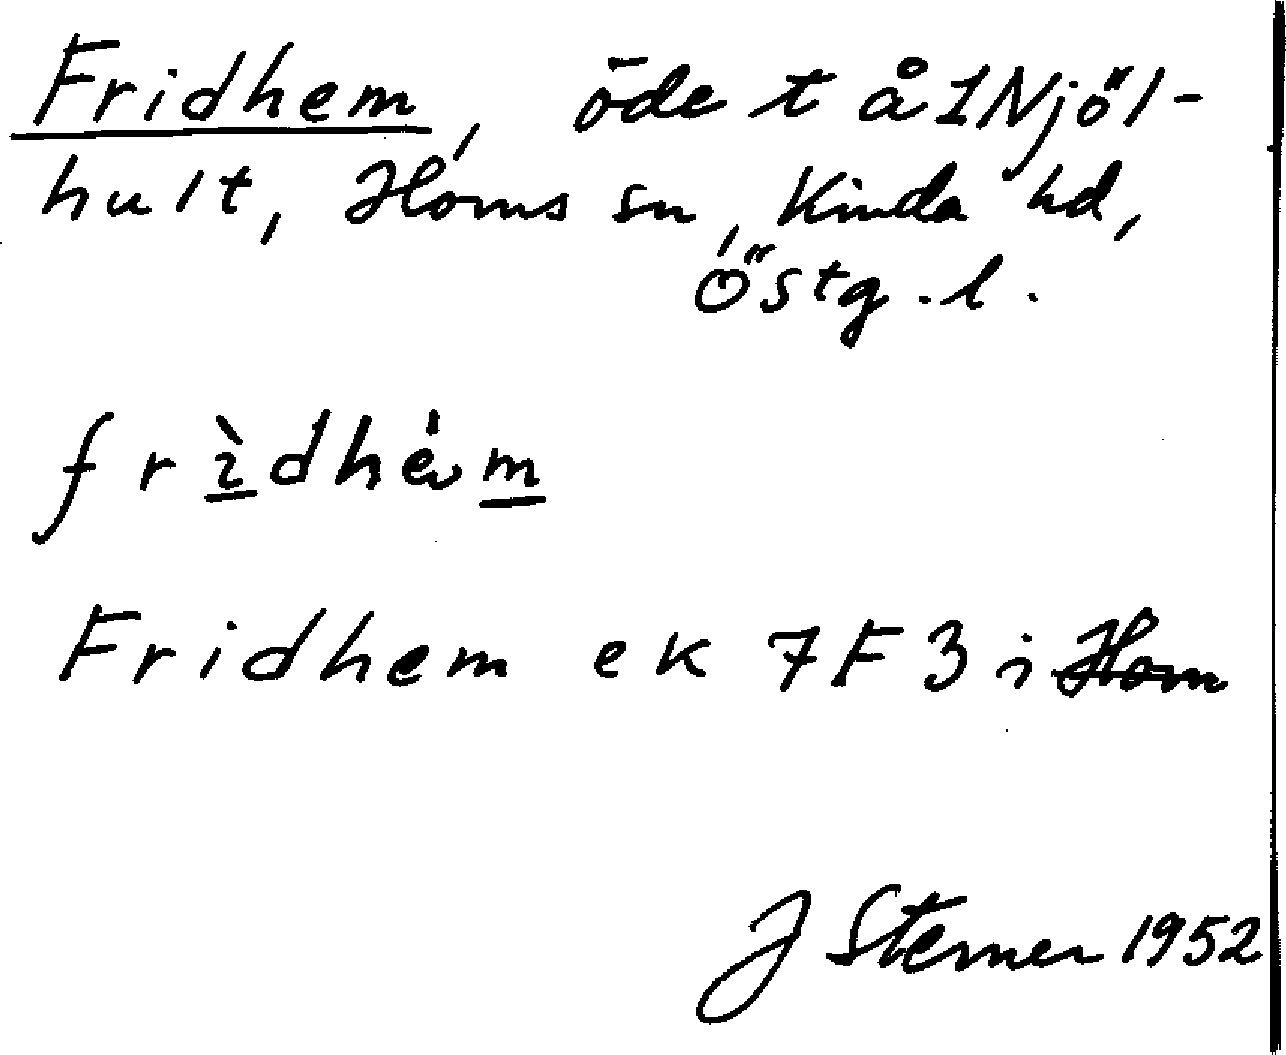 Fridhem, öde t å 1 Njöl-
hult, Horns sn, Kinda hd,
Östg. l.
frìdhèm
Fridhem ek 7F3 i Horn
J Sterner 1952